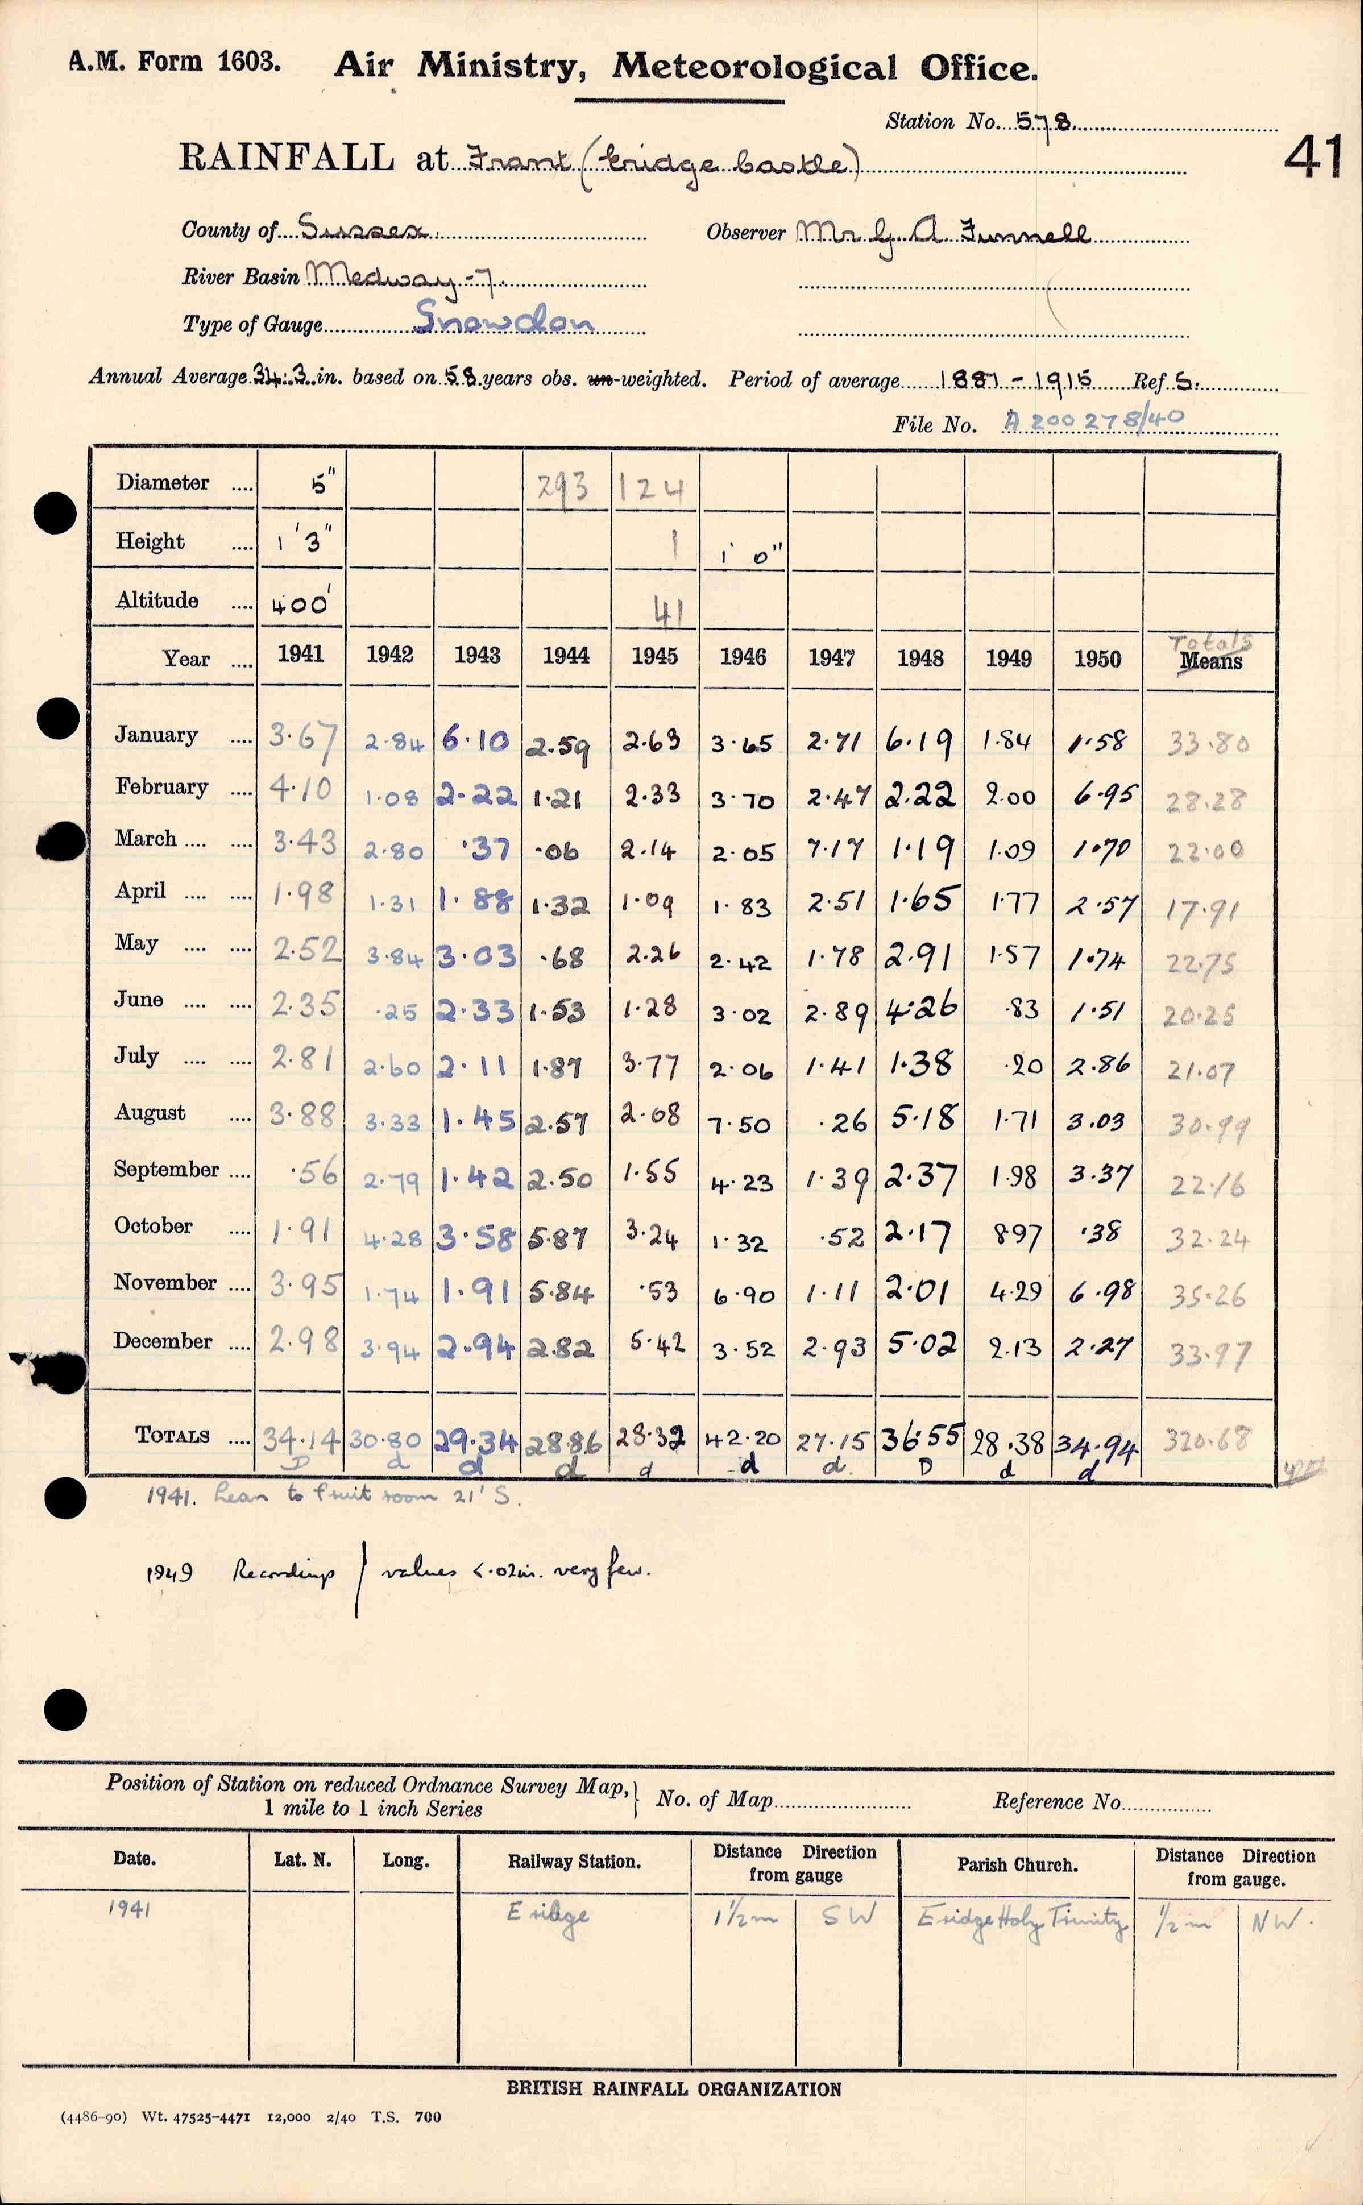 A.M. Form 1603. Air Ministry, Meteorological Office.
Station No. 578
41
RAINFALL at Frant (Eridge Castle)
County of Sussex. Observer Mr G. A. Funnell
River Basin Medway -7.
Type of Gauge Snowdon
Annual Average 34.3 in. based on 58 years obs. un-weighted. Period of average 1881 - 1915 Ref S.
File No. A 200 278/40
Diameter .... 5" 293 124
Height .... 1' 3" 1 1' 0"
Altitude .... 400' 41
Totals
Year .... 1941 1942 1943 1944 1945 1946 1947 1948 1949 1950 Means
January .... 3.67 2.84 6.10 2.59 2.63 3.65 2.71 6.19 1.84 1.58 33.80
February .... 4.10 1.08 2.22 1.21 2.33 3.70 2.47 2.22 2.00 6.95 28.28
March .... .... 3.43 2.80 .37 .06 2.14 2.05 7.17 1.19 1.09 1.70 22.00
April .... .... 1.98 1.31 1.88 1.32 1.09 1.83 2.51 1.65 1.77 2.57 17.91
May .... .... 2.52 3.84 3.03 .68 2.26 2.42 1.78 2.91 1.57 1.74 22.75
June .... .... 2.35 .25 2.33 1.53 1.28 3.02 2.89 4.26 .83 1.51 20.25
July .... .... 2.81 2.60 2.11 1.87 3.77 2.06 1.41 1.38 .20 2.86 21.07
August .... 3.88 3.33 1.45 2.57 2.08 7.50 .26 5.18 1.71 3.03 30.99
September .... .56 2.79 1.42 2.50 1.55 4.23 1.39 2.37 1.98 3.37 22.16
October .... 1.91 4.28 3.58 5.87 3.24 1.32 .52 2.17 8.97 .38 32.24
November .... 3.95 1.74 1.91 5.84 .53 6.90 1.11 2.01 4.29 6.98 35.26
December .... 2.98 3.94 2.94 2.82 5.42 3.52 2.93 5.02 2.13 2.27 33.97
TOTALS .... 34.14 30.80 29.34 28.86 28.32 42.20 27.15 36.55 28.38 34.94 320.68
D d d d d d d D d d
1941. Lean to fruit room 21' S.
1949 Recordings / values <.02in. very few.
Position of Station on reduced Ordnance Survey Map, No. of Map Reference No.
1 mile to 1 inch Series
Date. Lat. N. Long. Railway Station. Distance Direction from gauge Parish Church. Distance Direction from gauge.
1941 Eridge 1½ m SW Eridge Holy Trinity ½ m NW.
BRITISH RAINFALL ORGANIZATION
(4486-90) Wt. 47525-4471 12,000 2/40 T.S. 700